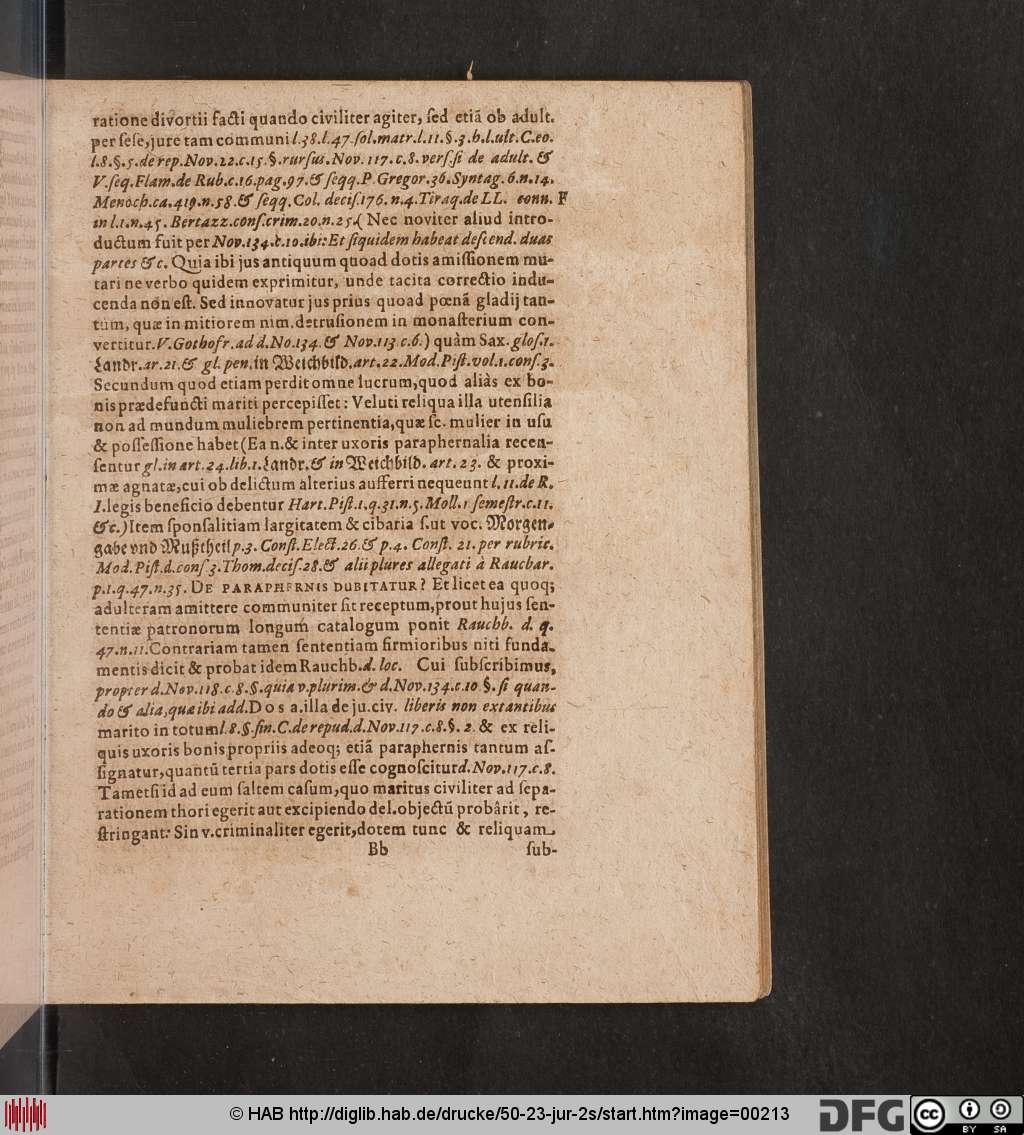 ratione divortii facti quando civiliter agiter, sed etiã ob adult.
per sese, jure tam communi l.38.l.47.sol.matr.l.11.§.3.h.l.ult.C.eo.
l.8.§.5.de rep.Nov.22.c.15.§.rursus.Nov.117.c.8.vers.si de adult. &
V.seq.Flam.de Rub.c.16.pag.97.& seqq.P.Gregor.36.Syntag.6.n.14.
Menoch.ca.419.n.58.& seqq.Col. decis.176.n.4.Tiraq.de LL. conn. F
in l.1.n.45. Bertazz.cons.crim.20.n.25.( Nec noviter aliud intro-
ductum fuit per Nov.134.c.10.ibi:Et siquidem habeat descend. duas
partes &c. Quia ibi jus antiquum quoad dotis amissionem mu-
tari ne verbo quidem exprimitur, unde tacita correctio indu-
cenda non est. Sed innovatur jus prius quoad pœnã gladij tan-
tùm, quæ in mitiorem nim. detrusionem in monasterium con-
vertitur.V.Gothofr.ad d.No.134.& Nov.113.c.6.) quàm Sax.glos.1.
Landr.ar.21.& gl.pen.in Weichbild.art.22.Mod.Pist.vol.1.cons.3.
Secundum quod etiam perdit omne lucrum, quod aliàs ex bo-
nis prædefuncti mariti percepisset: Veluti reliqua illa utensilia
non ad mundum muliebrem pertinentia, quæ sc. mulier in usu
& possessione habet (Ea n.& inter uxoris paraphernalia recen-
sentur gl.in art.24.lib.1.Landr.& in Weichbild.art.23. & proxi-
mæ agnatæ, cui ob delictum alterius aufferri nequeunt l.11.de R.
I.legis beneficio debentur Hart.Pist.1.q.31.n.5.Moll.1 semestr.c.11.
&c.) Item sponsalitiam largitatem & cibaria s.ut voc. Morgen-
gabe vnd Mußtheil p.3. Const.Elect.26.& p.4. Const. 21. per rubric.
Mod.Pist.d.cons 3.Thom.decis.28.& alii plures allegati à Raucbar.
p.1.q.47.n.35. DE PARAPHERNIS DUBITATUR? Et licet ea quoq;
adulteram amittere communiter sit receptum, prout hujus sen-
tentiæ patronorum longum catalogum ponit Rauchb. d. q.
47.n.11.Contrariam tamen sententiam firmioribus niti funda-
mentis dicit & probat idem Rauchb.d. loc. Cui subscribimus,
propter d.Nov.118.c.8.§.quia v.plurim.& d.Nov.134.c.10.§.si quan-
do & alia, quæ ibi add.Dos a.illa de ju.civ. liberis non extantibus
marito in totum l.8.§.fin.C.de repud.d.Nov.117.c.8.§. 2. & ex reli-
quis uxoris bonis propriis adeoq; etiã paraphernis tantum as-
signatur, quantũ tertia pars dotis esse cognoscitur d.Nov.117.c.8.
Tametsi id ad eum saltem casum, quo maritus civiliter ad sepa-
rationem thori egerit aut excipiendo del.objectũ probârit, re-
stringant: Sin v.criminaliter egerit, dotem tunc & reliquam
Bb sub-
© HAB http://diglib.hab.de/drucke/50-23-jur-2s/start.htm?image=00213
DFG
CC BY SA